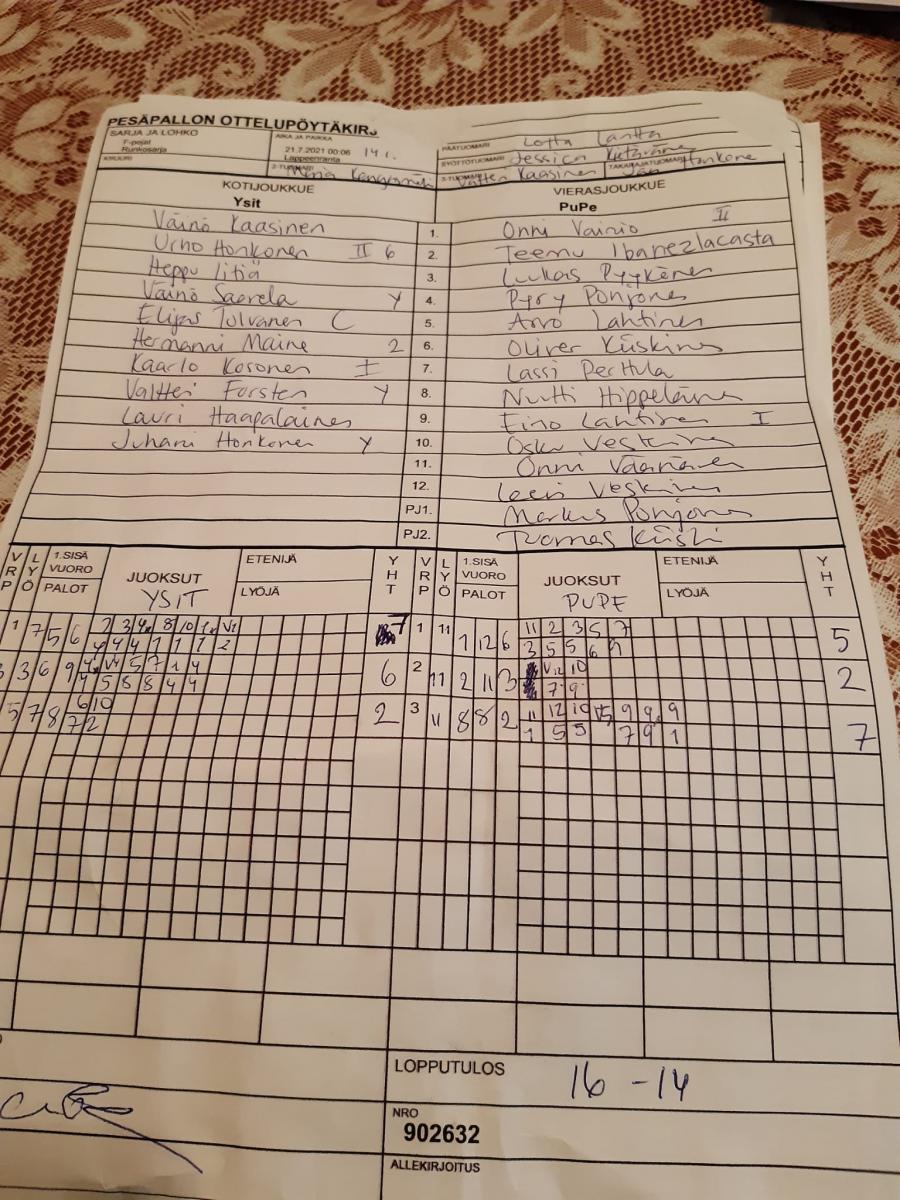 PESÄPALLON OTTELUPÖYTÄKIRJ
SARJA JA LOHKO
F-pojat
Runkosarja
AIKA JA PAIKKA
21.7.2021 00:06
Lappeenranta
PÄÄTUOMARI Lotta Lantta
SYÖTTÖTUOMARI Jessica
KIRJURI
2-TUOMARI
3-TUOMARI Kaasinen
TAKARAJATUOMARI Honkone
KOTIJOUKKUE
Ysit
VIERASJOUKKUE
PuPe
Väinö Kaasinen 1. Onni Vainio II
Urho Honkonen II 6 2. Teemu Ibanezlacasta
Heppu Litiä 3. Lukas Pyykönen
Väinö Saarela Y 4. Pyry Pohjonen
Elijas Tolvanen C 5. Arvo Lahtinen
Hermanni Maine 2 6. Oliver Kiiskinen
Kaarlo Kosonen I 7. Lassi Perttula
Valtteri Forsten Y 8. Nuutti Hippeläinen
Lauri Haapalainen 9. Eino Lahtinen I
Juhani Honkonen Y 10. Veskinen
11. Onni Väänänen
12. Veskinen
PJ1. Markus Pohjonen
PJ2. Tuomas Kiiski
VRP LYÖ 1.SISÄ VUORO PALOT JUOKSUT YSIT ETENIJÄ LYÖJÄ YHT
VRP LYÖ 1.SISÄ VUORO PALOT JUOKSUT PUPE ETENIJÄ LYÖJÄ YHT
1 7 5 6 7 1 11 1 12 6 11 2 3 5 7 5
3 5 5 6
3 6 9 6 2 11 2 11 3 V12 10 2
5 8 8 4 4 7 9
5 7 8 6 10 2 3 11 8 8 2 11 12 10 9 9 9 7
7 2 1 5 5 7 9 1
LOPPUTULOS 16 - 14
NRO
902632
ALLEKIRJOITUS